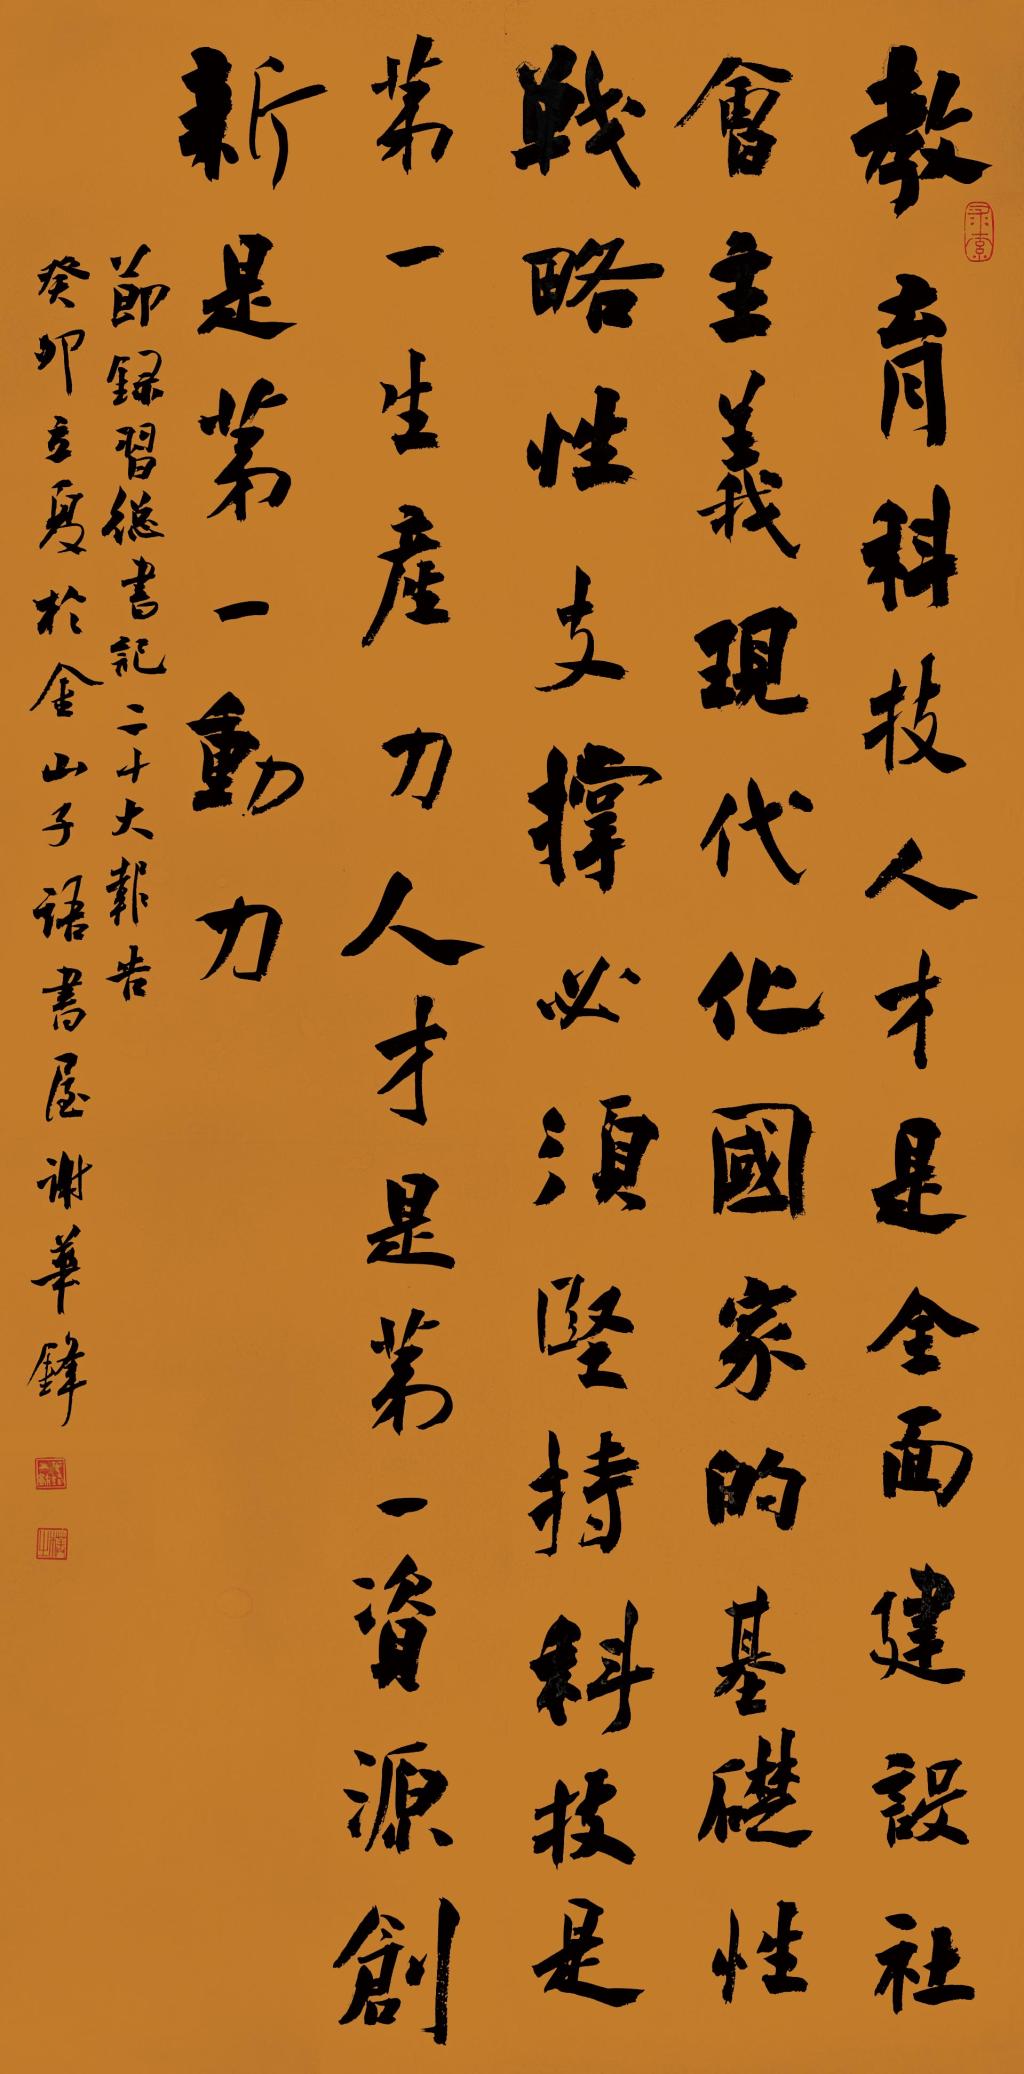 教育科技人才是全面建設社
會主義現代化國家的基礎性
戰略性支撐必須堅持科技是
第一生產力人才是第一資源創
新是第一動力
節録習總書記二十大報告
癸卯立夏於金山子語書屋謝華鋒